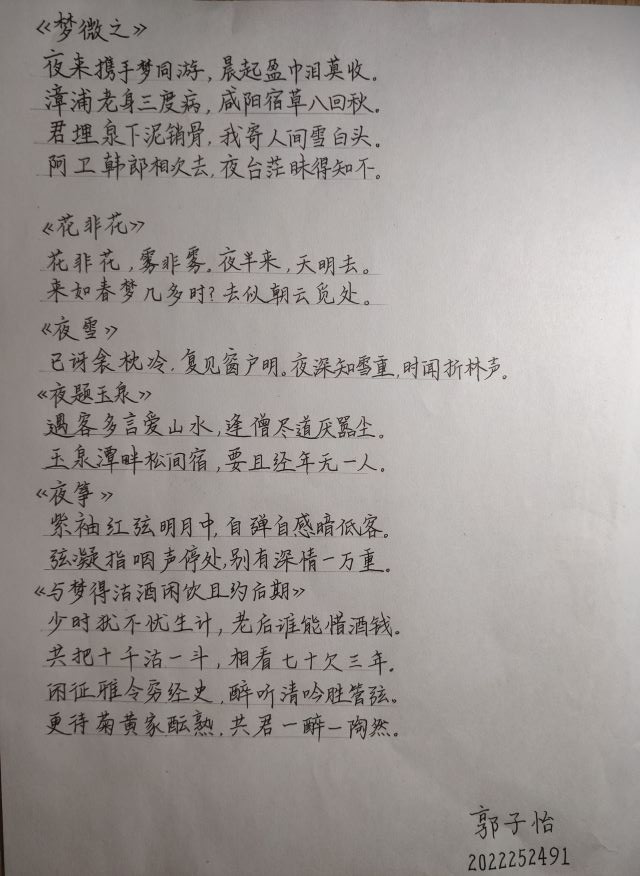 《梦微之》
夜来携手梦同游，晨起盈巾泪莫收。
漳浦老身三度病，咸阳宿草八回秋。
君埋泉下泥销骨，我寄人间雪白头。
阿卫韩郎相次去，夜台茫昧得知不。
《花非花》
花非花，雾非雾。夜半来，天明去。
来如春梦几多时？去似朝云觅处。
《夜雪》
已讶衾枕冷，复见窗户明。夜深知雪重，时闻折林声。
《夜题玉泉》
遇客多言爱山水，逢僧尽道厌嚣尘。
玉泉潭畔松间宿，要且经年无一人。
《夜筝》
紫袖红弦明月中，自弹自感暗低客。
弦凝指咽声停处，别有深情一万重。
《与梦得沽酒闲饮且约后期》
少时犹不忧生计，老后谁能惜酒钱。
共把十千沽一斗，相看七十欠三年。
闲征雅令穷经史，醉听清吟胜管弦。
更待菊黄家酝熟，共君一醉一陶然。
郭子怡
2022252491